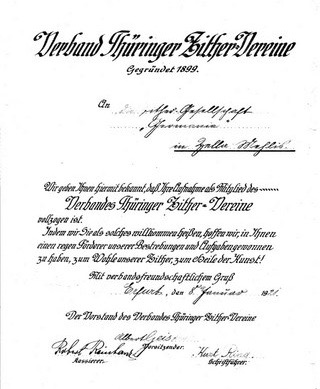 Verband Thüringer Zither-Vereine
Gegründet 1899.
An
Zither-Gesellschaft
"Germania"
in Zella Mehlis.
Wir geben Ihnen hiermit bekannt, daß Ihre Aufnahme als Mitglied des
Verbandes Thüringer Zither-Vereine
vollzogen ist.
Indem wir Sie als solches willkommen heißen, hoffen wir, in Ihnen
einen regen Förderer unserer Bestrebungen und Aufgaben gewonnen
zu haben, zum Wohle unserer Zither, zum Heile der Kunst!
Mit verbandsfreundschaftlichem Gruß
Erfurt, den 8. Januar 192
Der Vorstand des Verbandes Thüringer Zither-Vereine
Albert
Vorsitzender.
Robert Reinhard Kurt
Kassierer. Schriftführer.